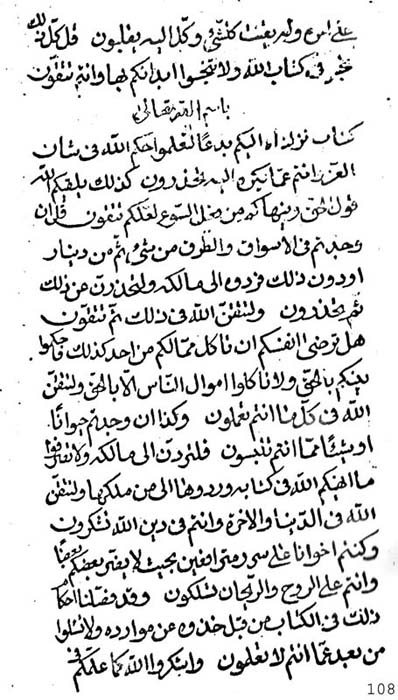 على امره وله يعنت كلشئ وكل اليه يقلبون قل كل ذلك
في كتاب الله ولا تنجسوا ابدانكم بها وانتم تتقون
باسم الله تعالى
كتاب نزلناه اليكم بدعا لتعلموا حكم الله في شان
العزيز انتم عما يكره الله تحذرون كذلك يلقيكم الله
قول حق وينهاكم من فعل السوء لعلكم تتقون قل ان
وجدتم في الاسواق والطرق من شئ ثم من دينار
او دون ذلك فردوه الى مالكه ولتحذرن من ذلك
ثم تحذرون ولتتقن الله في ذلك ثم تتقون
هل ترضى انفسكم ان تاكل ممالكم من احد كذلك فاحكموا
بينكم بالحق ولا تاكلوا اموال الناس الا بالحق ولتتقن
الله في كل ما انتم تعملون وكذا ان وجدتم حيوانا
او شيئا مما انتم تلبسون فلتردن الى مالكه ولا
ما الهيكم الله في كتابه وردوها الى من ملكها ولتتقن
الله في الدنيا والاخرة وانتم في دين الله تشكرون
وكنتم اخوانا على سرر مترافعين بحيث لا يفتر بعضكم بعضا
وانتم على الروح والريحان تسلكون وقد فصلنا احكام
ذلك في الكتاب من قبل خذوه عن موارده ولا تسئلوا
من بعد عما انتم لا تعلمون وابتكروا الله كما علمكم في
108